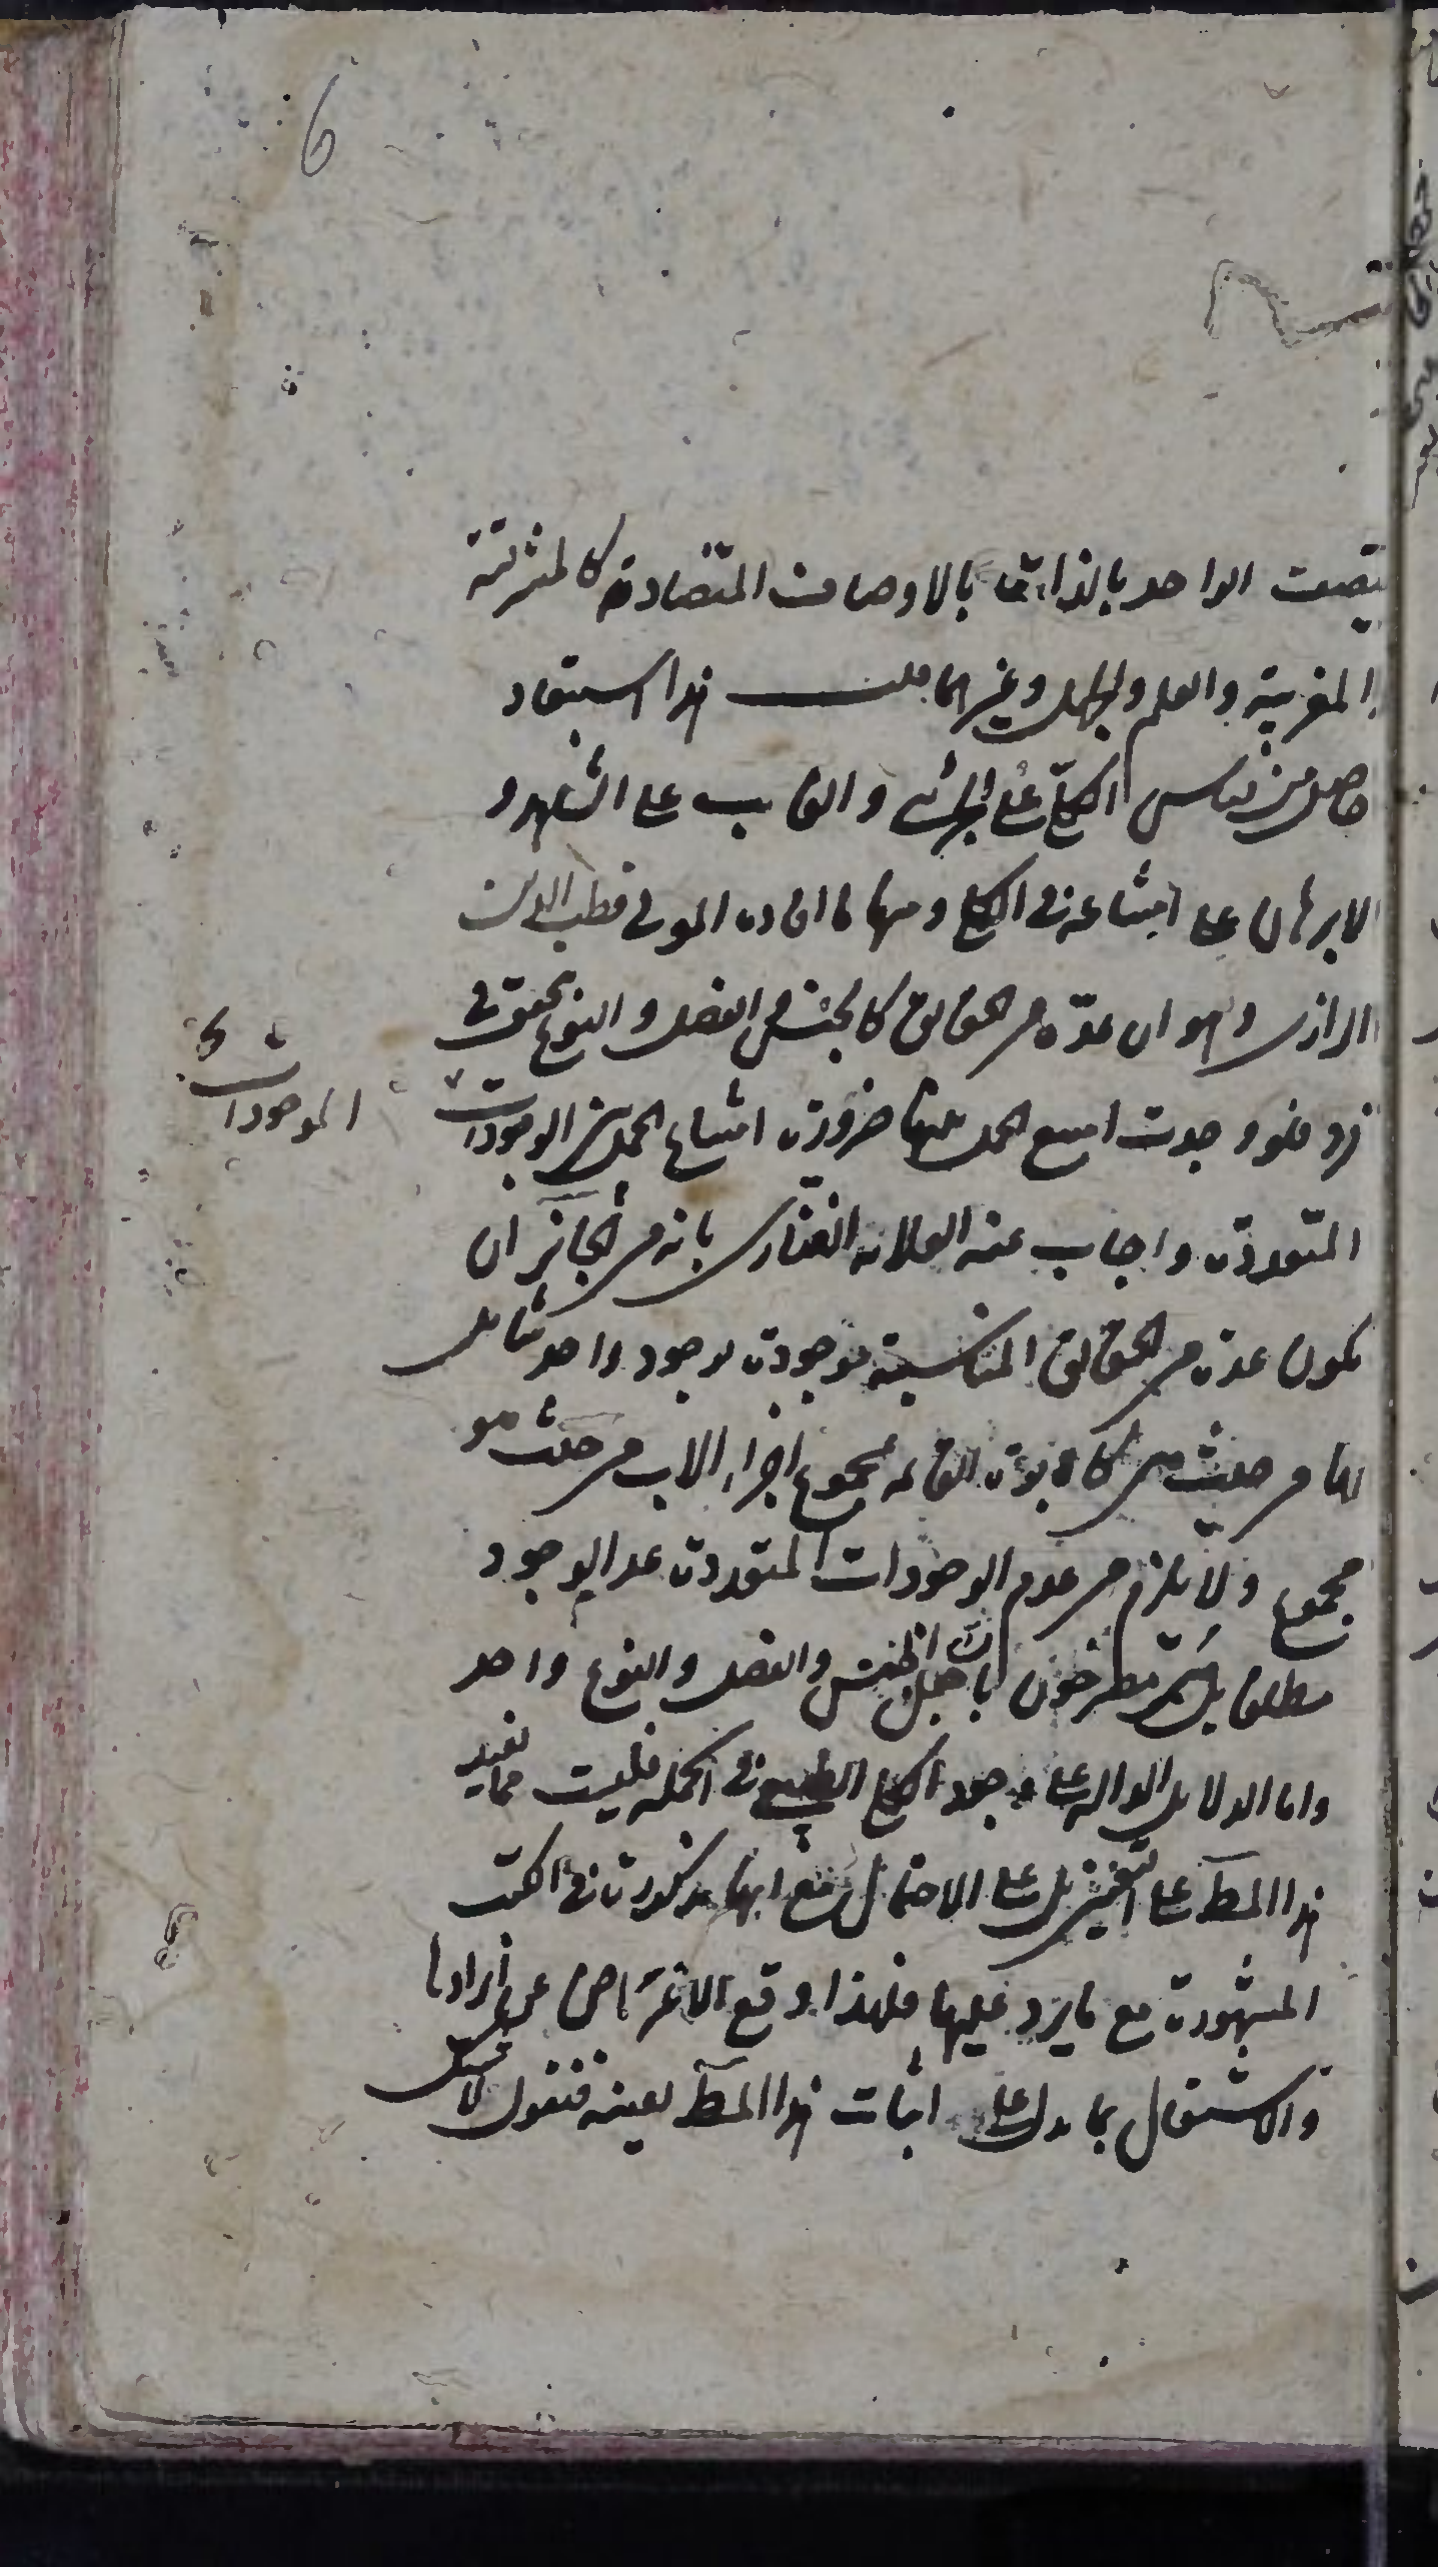 6
يتصف الواحد بالذات بالاوصاف المتضادة كالمشرقية
المغربية والعلم والجهل وغيرهما قلت هذا استبعاد
حاصل من قياس الكلي على الجزئي والغايب على الشاهد و
لا برهان على امتناعه في الكلي ومنها ما افاده المولى قطب الدين
الرازي وهو ان عدة من الحقايق كالجنس والفصل والنوع يتحقق في
فرد فلو وجدت امتنع الحمل بينها ضرورة امتناع الحمل بين الوجودات
الموجودات
المتعددة واجاب عنه العلامة الفناري بانه من الجائز ان
يكون عدة من الحقايق المتناسبة موجودة بوجود واحد شامل
لها من حيث هي كالابوة القائمة بمجموع اجزاء الاب من حيث هو
مجموع ولا يلزم من عدم الوجودات المتعددة عدم الوجود
مطلقا بل هم مصرحون بان جعل الجنس والفصل والنوع واحد
واما الدلايل الدالة على وجود الكلي الطبيعي في الجملة فليست مما يفيد
هذا المط على التعيين بل على الاحتمال مع انها مذكورة في الكتب
المشهورة مع ما يرد عليها فلهذا وقع الاعتراض عن ايرادها
والاشتغال بما يدل على اثبات هذا المط بعينه فنقول لا شك